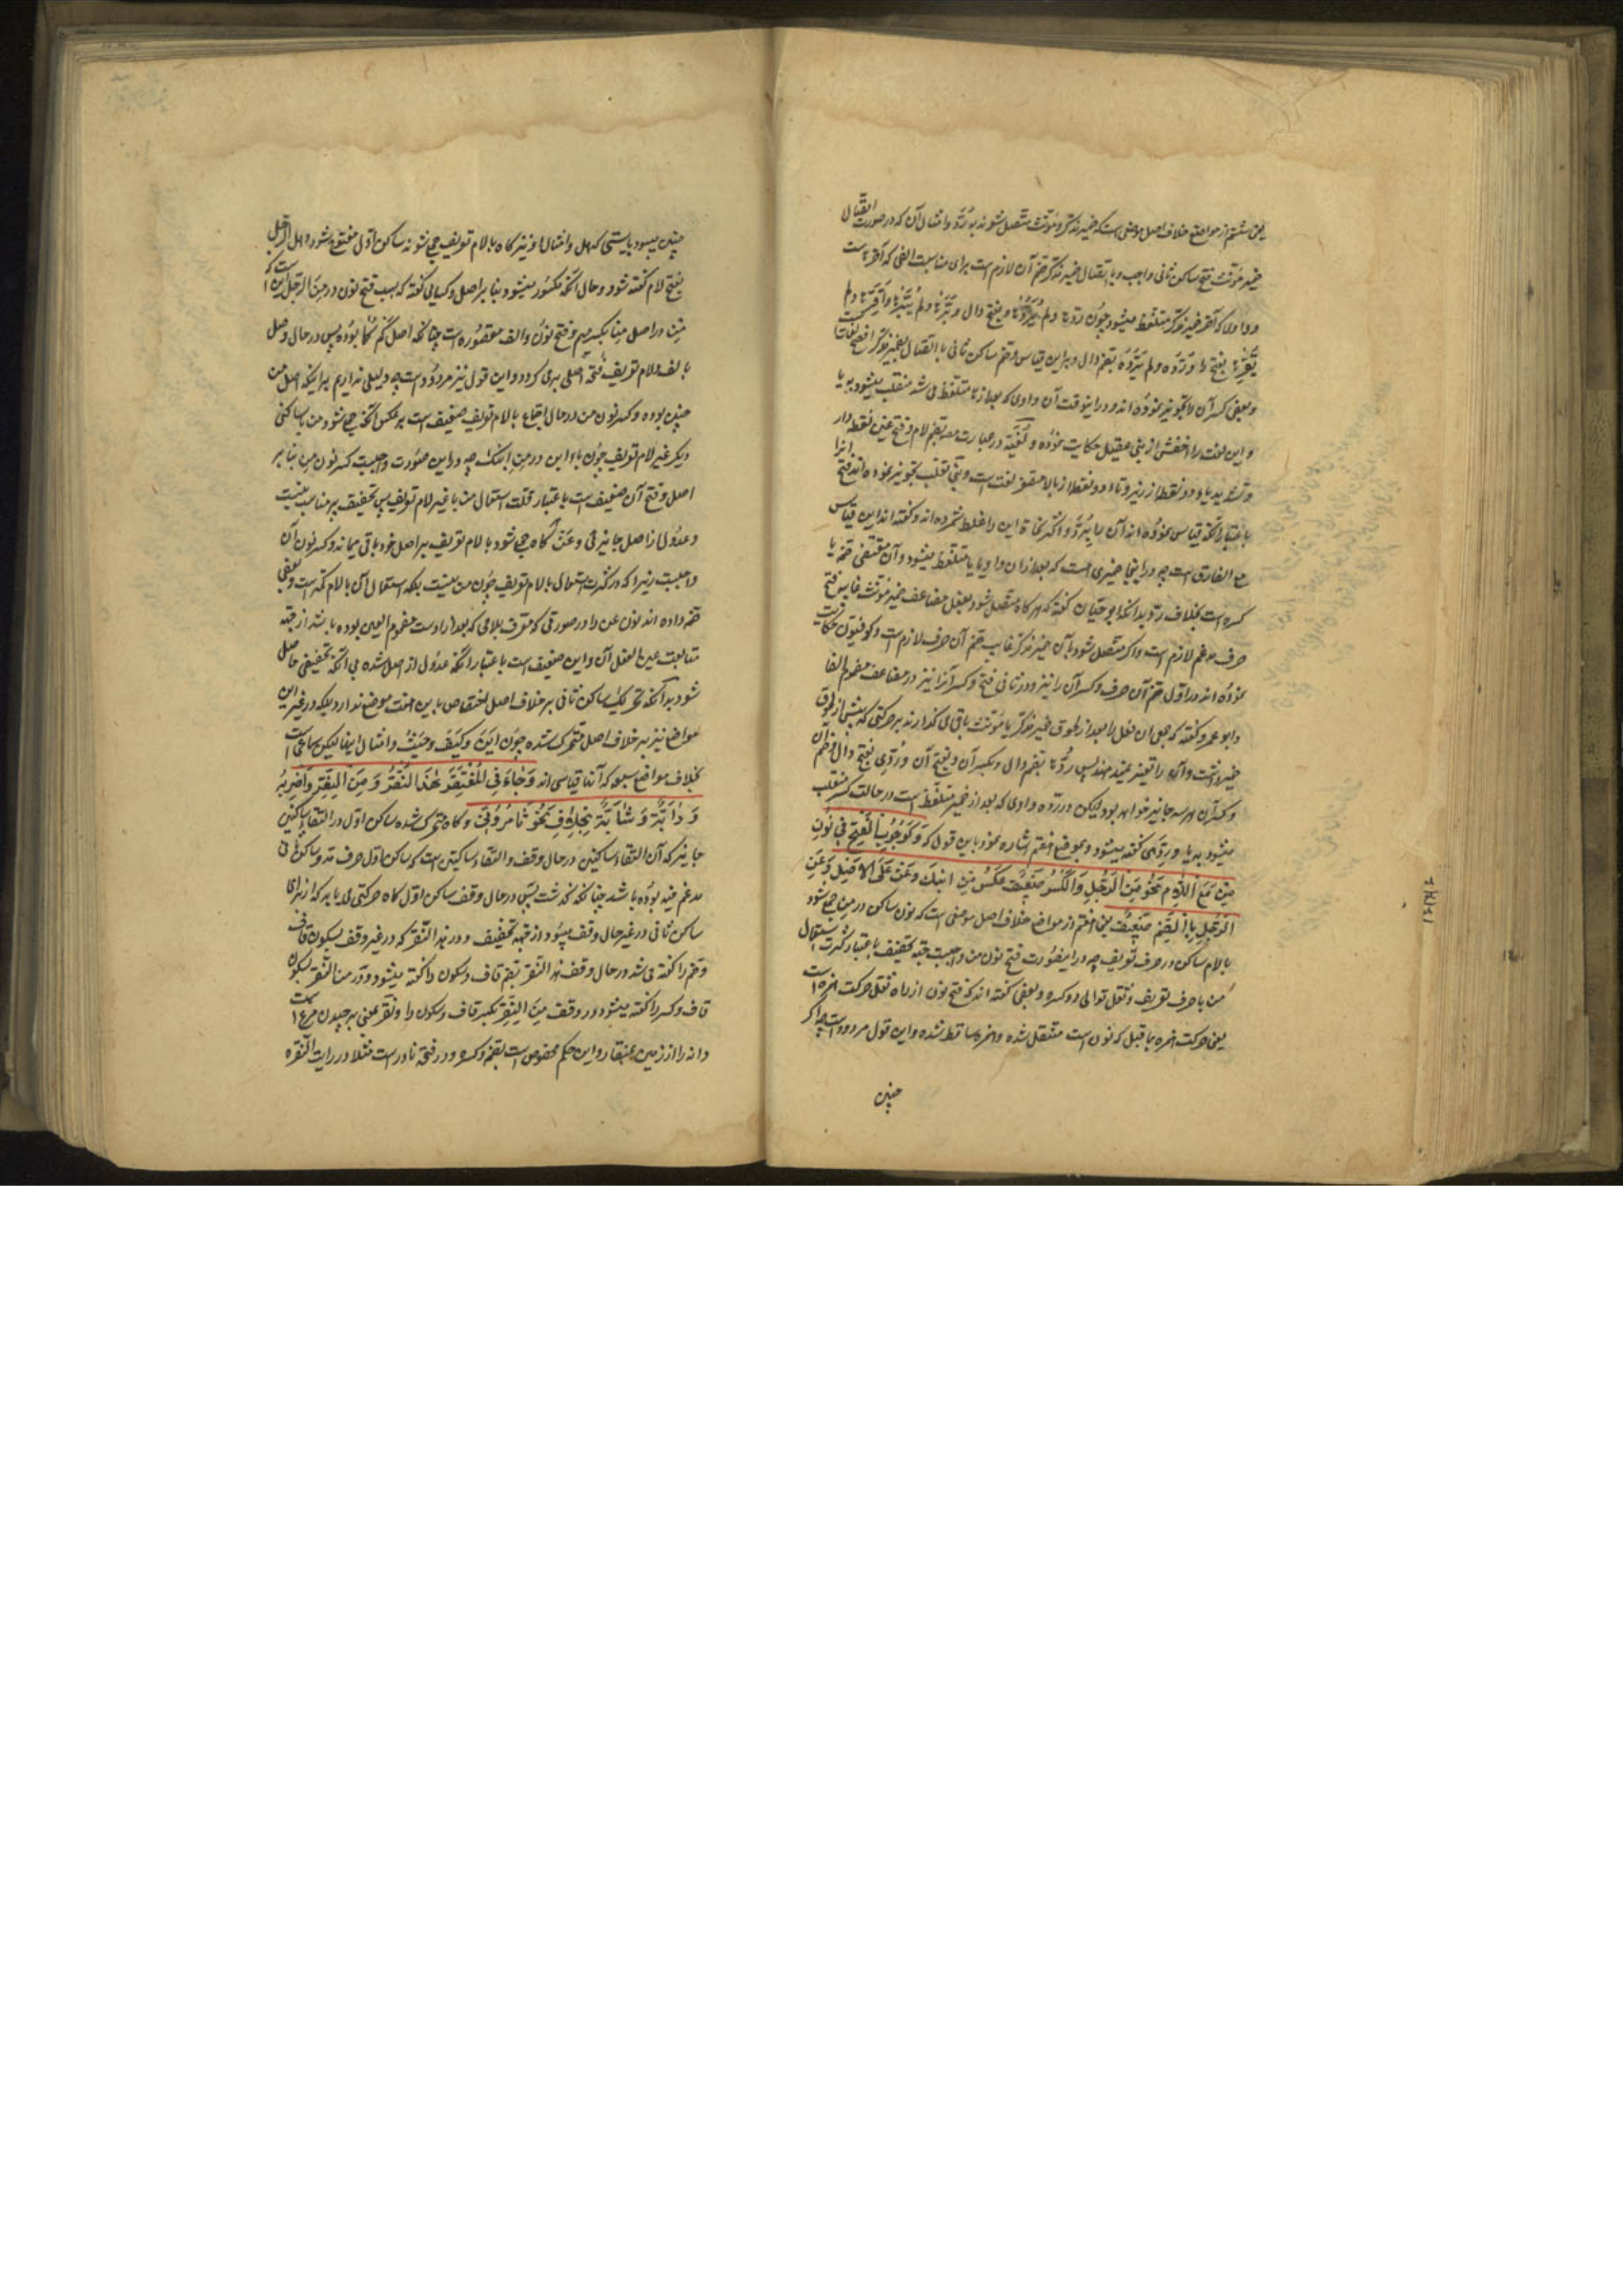 یعنی ششم از مواضع خلاف اصل موضعی است که ضمیر مذکر و مؤنث متصل شوند به رُدَّ و امثال آن که در صورت اتصال
ضمیر مؤنث فتح ساکن ثانی واجب و با اتصال ضمیر مذکر ضم آن لازم است برای مناسبت الفی که آخر ها است
و واوی که آخر ضمیر مذکر متلفظ میشود چون ردها و لم یردها بفتح دال و
بفتح را و ردُّه و لم یردُّه بضم دال و برین قیاس و ضم ساکن ثانی با اتصال بضمیر مذکر افصح لغات
و بعضی کسر آن را تجویز نموده اند و در اینوقت آن واوی که بعد از ها متلفظ می شد منقلب میشود به یا
و این لغت را اخفش از بنی عقیل حکایت نموده و لُغَیَّة در عبارت مص بضم لام و فتح غین نقطه دار
و تشدید یا دو نقطه از زیر و تاء دو نقطه از بالا مصغر لغت است و بنی ثعلب تجویز نموده اند فتح انرا
باعتبار آنکه قیاس نموده اند آن را به رُدَّ و اکثر نحاة این را غلط شمرده اند و گفته اند این قیاس
مع الفارق است چه در اینجا ضمیری است که بعد از ان واو یا یا متلفظ میشود و آن مقتضی ضمه یا
کسره است بخلاف ردّ بدانکه ابو حیان گفته که هر گاه متصل شود بفعل مضاعف ضمیر مؤنث غایب فتح
حرف مدغم لازم است و اگر متصل شود بآن ضمیر مذکر غایب ضم آن حرف لازم است و کوفیون حکایت
نموده اند در اول ضم آن حرف و کسر آن را نیز و در ثانی فتح و کسر آنرا نیز در مضاعف مضموم الفا
و ابو عمرو گفته که بعد از لحوق ضمیر مذکر یا مؤنث باقی می گذارند بر حرکتی که پیش از لحوق
ضمیر داشت و آن را تغییر نمیدهند پس ردها بضم دال و بکسر آن و بفتح آن و ردّه بفتح دال و ضم آن
و کسر آن هر سه جایز خواهد بود لیکن در ردّه واوی که بعد از ضمیر متلفظ است در حالت کسر منقلب
میشود به یا و ردّهی گفته میشود و بموضع هفتم اشاره نمود باین قول که وَکَوُجُوبِ الْفَتْحِ فی نُونِ
مِنْ مَعَ اللّامِ نَحْوُ مِنَ الرَّجُلِ وَالْکَسْرُ ضَعیفٌ عَکْسُ مِنِ ابْنِکَ وَعَنْ عَلَی الْاَصْلِ وَعَنِ
الرَّجُلِ بِالضَّمِّ ضَعیفٌ یعنی هفتم از مواضع خلاف اصل موضعی است که نون ساکن در مِن جمع شود
با لام ساکن در حرف تعریف چه در اینصورت فتح نون من واجبست جهة تخفیف باعتبار کثرت استعمال
من با حرف تعریف و ثقل توالی دو کسره و بعضی گفته اند که فتح نون از راه نقل حرکت همزه است
یعنی حرکت همزه بما قبل که نون است منتقل شده و همزه ساقط شده و این قول مردود است چه اگر
چنین
چنین میبود بایستی که هل و امثال او نیز گاه با لام تعریف جمع شوند ساکن اول مفتوح شود و هل الرجل
بفتح لام گفته شود و حال آنکه مکسور میشود بنا بر اصل و کسایی گفته که سبب فتح نون در من الرجل این است که
مِن در اصل مِنا بکسر میم و فتح نون و الف مقصوره است چنانکه اصل کم کما بوده پس در حال وصل
بالف و لام تعریف فتحه اصلی بر می گردد و این قول نیز مردود است چه دلیلی نداریم بر اینکه اصل من
چنین بوده و کسر نون من در حال اجتماع با لام تعریف ضعیف است بر عکس آنکه جمع شود من با ساکنی
دیگر غیر لام تعریف چون باء ابن در من ابنک چه در این صورت واجبست کسر نون من بنا بر
اصل و فتح آن ضعیف است باعتبار قلت استعمال من با غیر لام تعریف پس تخفیف پر مناسب نیست
و عدول از اصل جایز نی و عَنْ گاه جمع شود با لام تعریف بر اصل خود باقی میماند و کسر نون آن
واجبست زیرا که در کثرت استعمال با لام تعریف چون من نیست بلکه استعمال آن با لام کمتر است و بعضی
ضمه داده اند نون عن را در صورتی که معرف بلامی که بعد از اوست مضموم العین بوده باشد از جهة
متابعت عین الفعل آن و این ضعیف است باعتبار آنکه عدول از اصل شده بی آنکه تخفیفی حاصل
شود بدانکه تحریک ساکن ثانی بر خلاف اصل اختصاص باین هفت موضع ندارد بلکه در غیر این
مواضع نیز بر خلاف اصل متحرک شده چون این و کیف و حیث و امثال اینها لیکن سماعی است
بخلاف مواضع سبعه که آنها قیاسی اند وَجاءَ فی الْمُغْتَفَرِ هٰذَا النَّقُرُ وَمِنَ النَّقِرِ وَاضْرِبُهُ
وَدَابَّةٌ وَشَابَّةٌ بِخِلافِ نَحْوِ تَأْمُرُونّی و گاه متحرک شده ساکن اول در التقاء ساکنین
جایز که آن التقاء ساکنین در حال وقف و التقاء ساکنین است که ساکن اول حرف مد و ساکن ثانی
مدغم فیه بوده باشد چنانکه گذشت پس در حال وقف ساکن اول گاه حرکتی می یابد که از برای
ساکن ثانی در غیر حال وقف میبود از جهة تخفیف و در هذا النقر که در غیر وقف بسکون قاف
و ضم را گفته می شد در حال وقف هذا النقر بضم قاف و سکون را گفته میشود و در من النقر بسکون
قاف و کسر را گفته میشود در وقف من النقر بکسر قاف و سکون را و نقر بمعنی برچیدن مرغ است
دانه را از زمین بمنقار و این حکم مخصوص است بضمه و کسره و در فتحه نادر است مثلا در رایت النقره